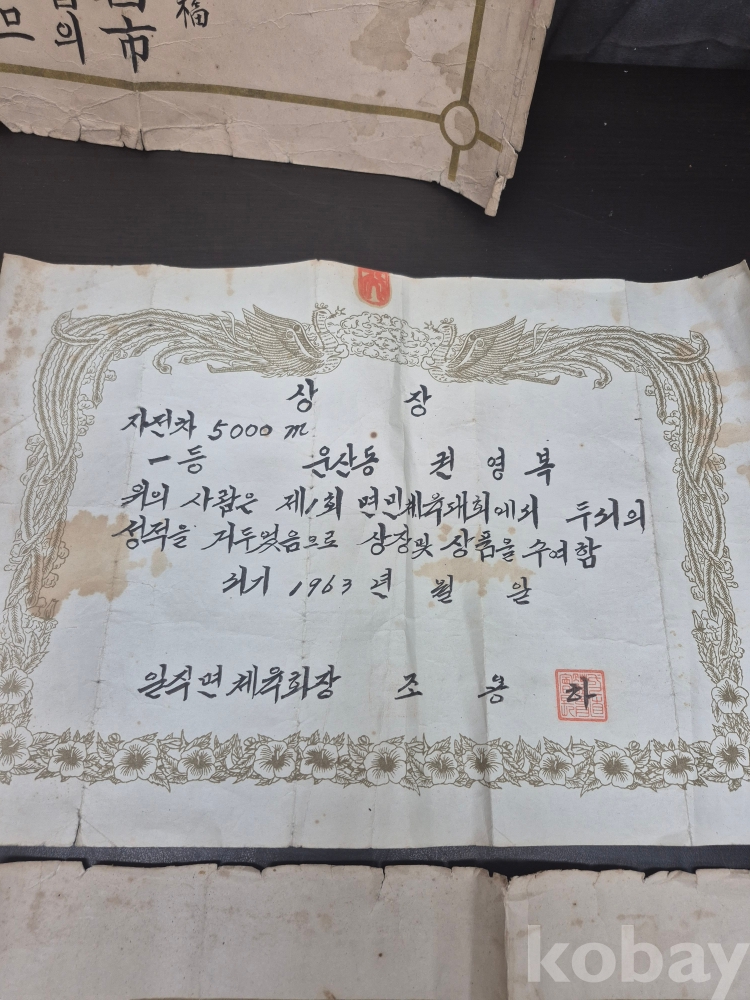 福
市
의
므
상 장
자전차 5000 m
一등 운산동 권 영 복
위의 사람은 제1회 면민체육대회에서 두서의
성적을 거두었음으로 상장및 상품을 수여함
서기 1963 년 월 일
일직면체육회장 조 용 하
kobay